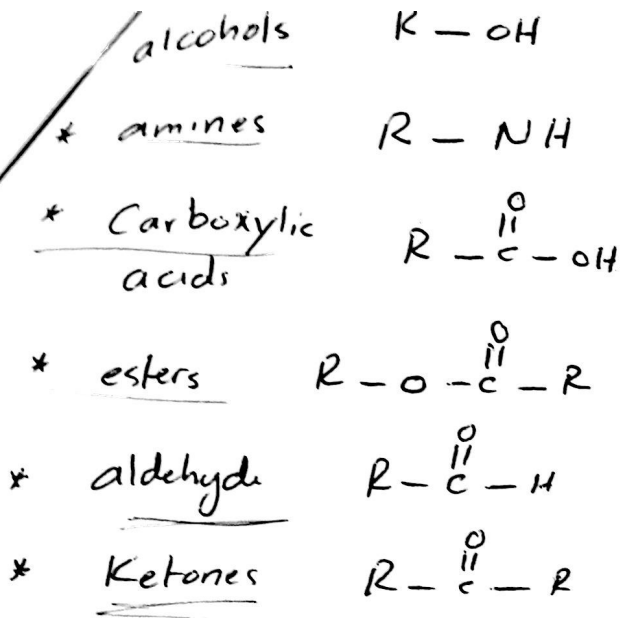 alcohols K — OH
* amines R — NH
* Carboxylic
acids
O
||
R — C — OH
O
||
* esters R — O — C — R
O
||
* aldehyde R — C — H
O
||
* Ketones R — C — R